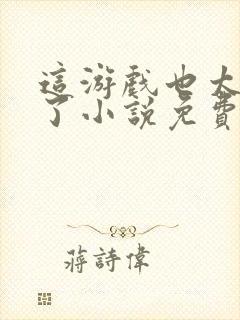 這游戲也太
了小說免費
蔣詩偉